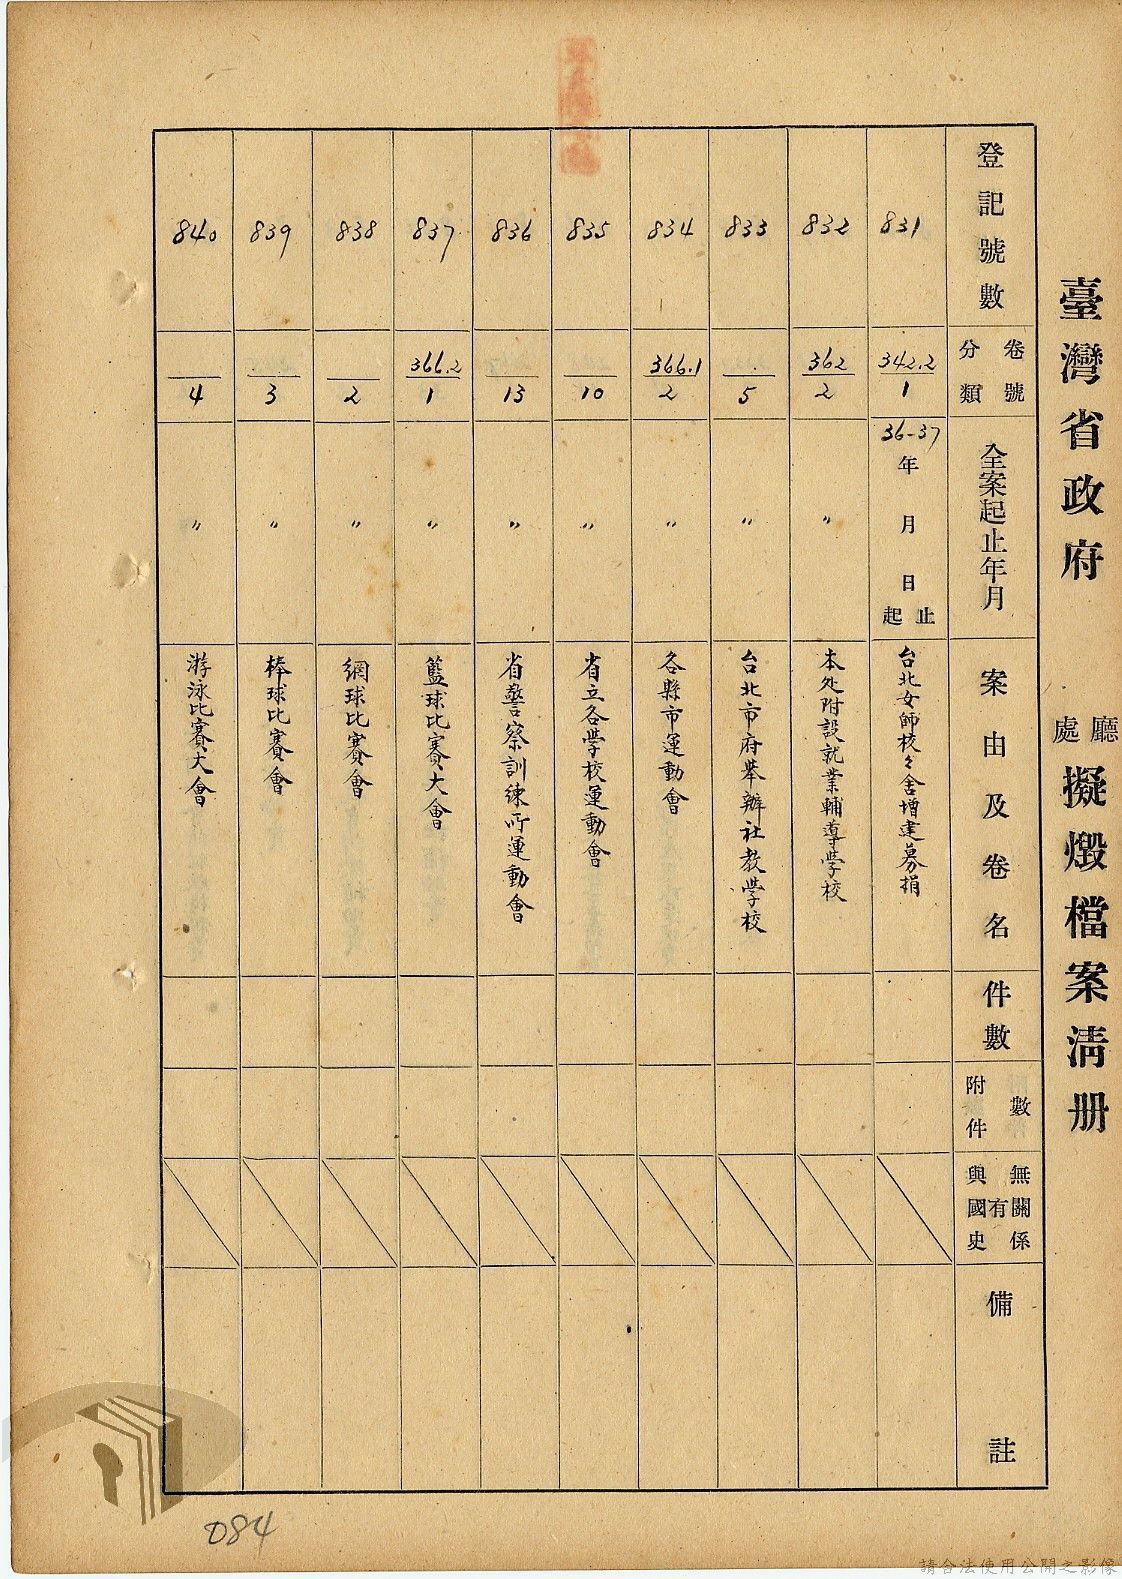 臺灣省政府 廳處 擬燬檔案清册
登記號數
分類 卷號
全案起止年月
案由及卷名
件數
附件 數
與國史有無關係
備註
831 342.2/1 36-37年 月 日 起止 台北女師校々舍增建募捐
832 362/2 〃 本处附設就業輔導学校
833 5 〃 台北市府举辦社教学校
834 366.1/2 〃 各縣市運動會
835 10 〃 省立各学校運動會
836 13 〃 省警察訓練所運動會
837 366.2/1 〃 籃球比賽大會
838 2 〃 網球比賽會
839 3 〃 棒球比賽會
840 4 〃 游泳比賽大會
084
請合法使用公開之影像